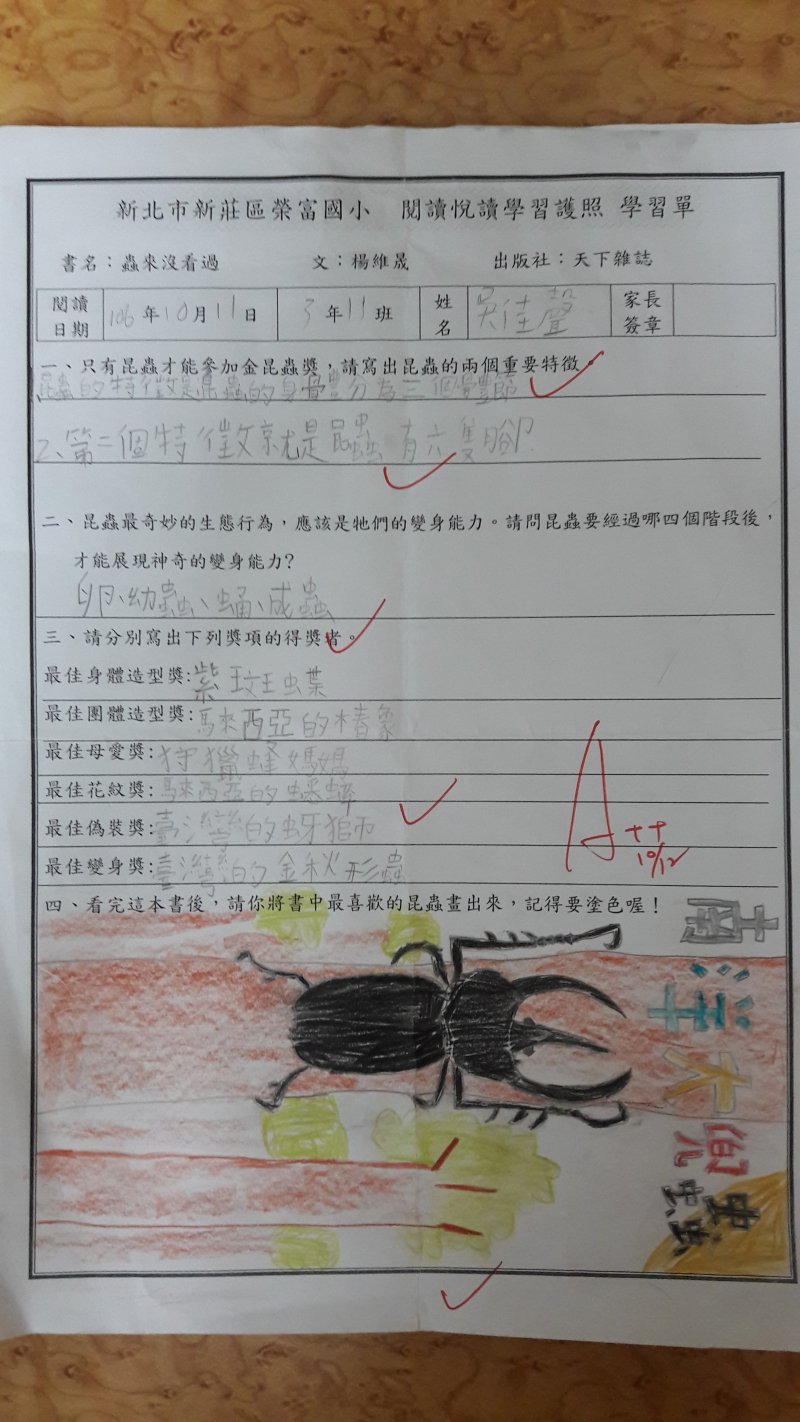 新北市新莊區榮富國小 閱讀悅讀學習護照 學習單
書名：蟲來沒看過 文：楊維晟 出版社：天下雜誌
閱讀日期 106年10月11日 3年11班 姓名 吳佳聲 家長簽章
一、只有昆蟲才能參加金昆蟲獎，請寫出昆蟲的兩個重要特徵。
昆蟲的特徵是昆蟲的身體分為三個體節
2、第二個特徵就是昆蟲有六隻腳
二、昆蟲最奇妙的生態行為，應該是牠們的變身能力。請問昆蟲要經過哪四個階段後，
才能展現神奇的變身能力?
卵、幼蟲、蛹、成蟲
三、請分別寫出下列獎項的得獎者。
最佳身體造型獎:紫
最佳團體造型獎:馬來西亞的椿象
最佳母愛獎:狩獵蜂媽媽
最佳花紋獎:馬來西亞的蟑
最佳偽裝獎:臺灣的蚜獅
最佳變身獎:臺灣的金秋形蟲
A++
10/12
四、看完這本書後，請你將書中最喜歡的昆蟲畫出來，記得要塗色喔！
南洋大兜蟲